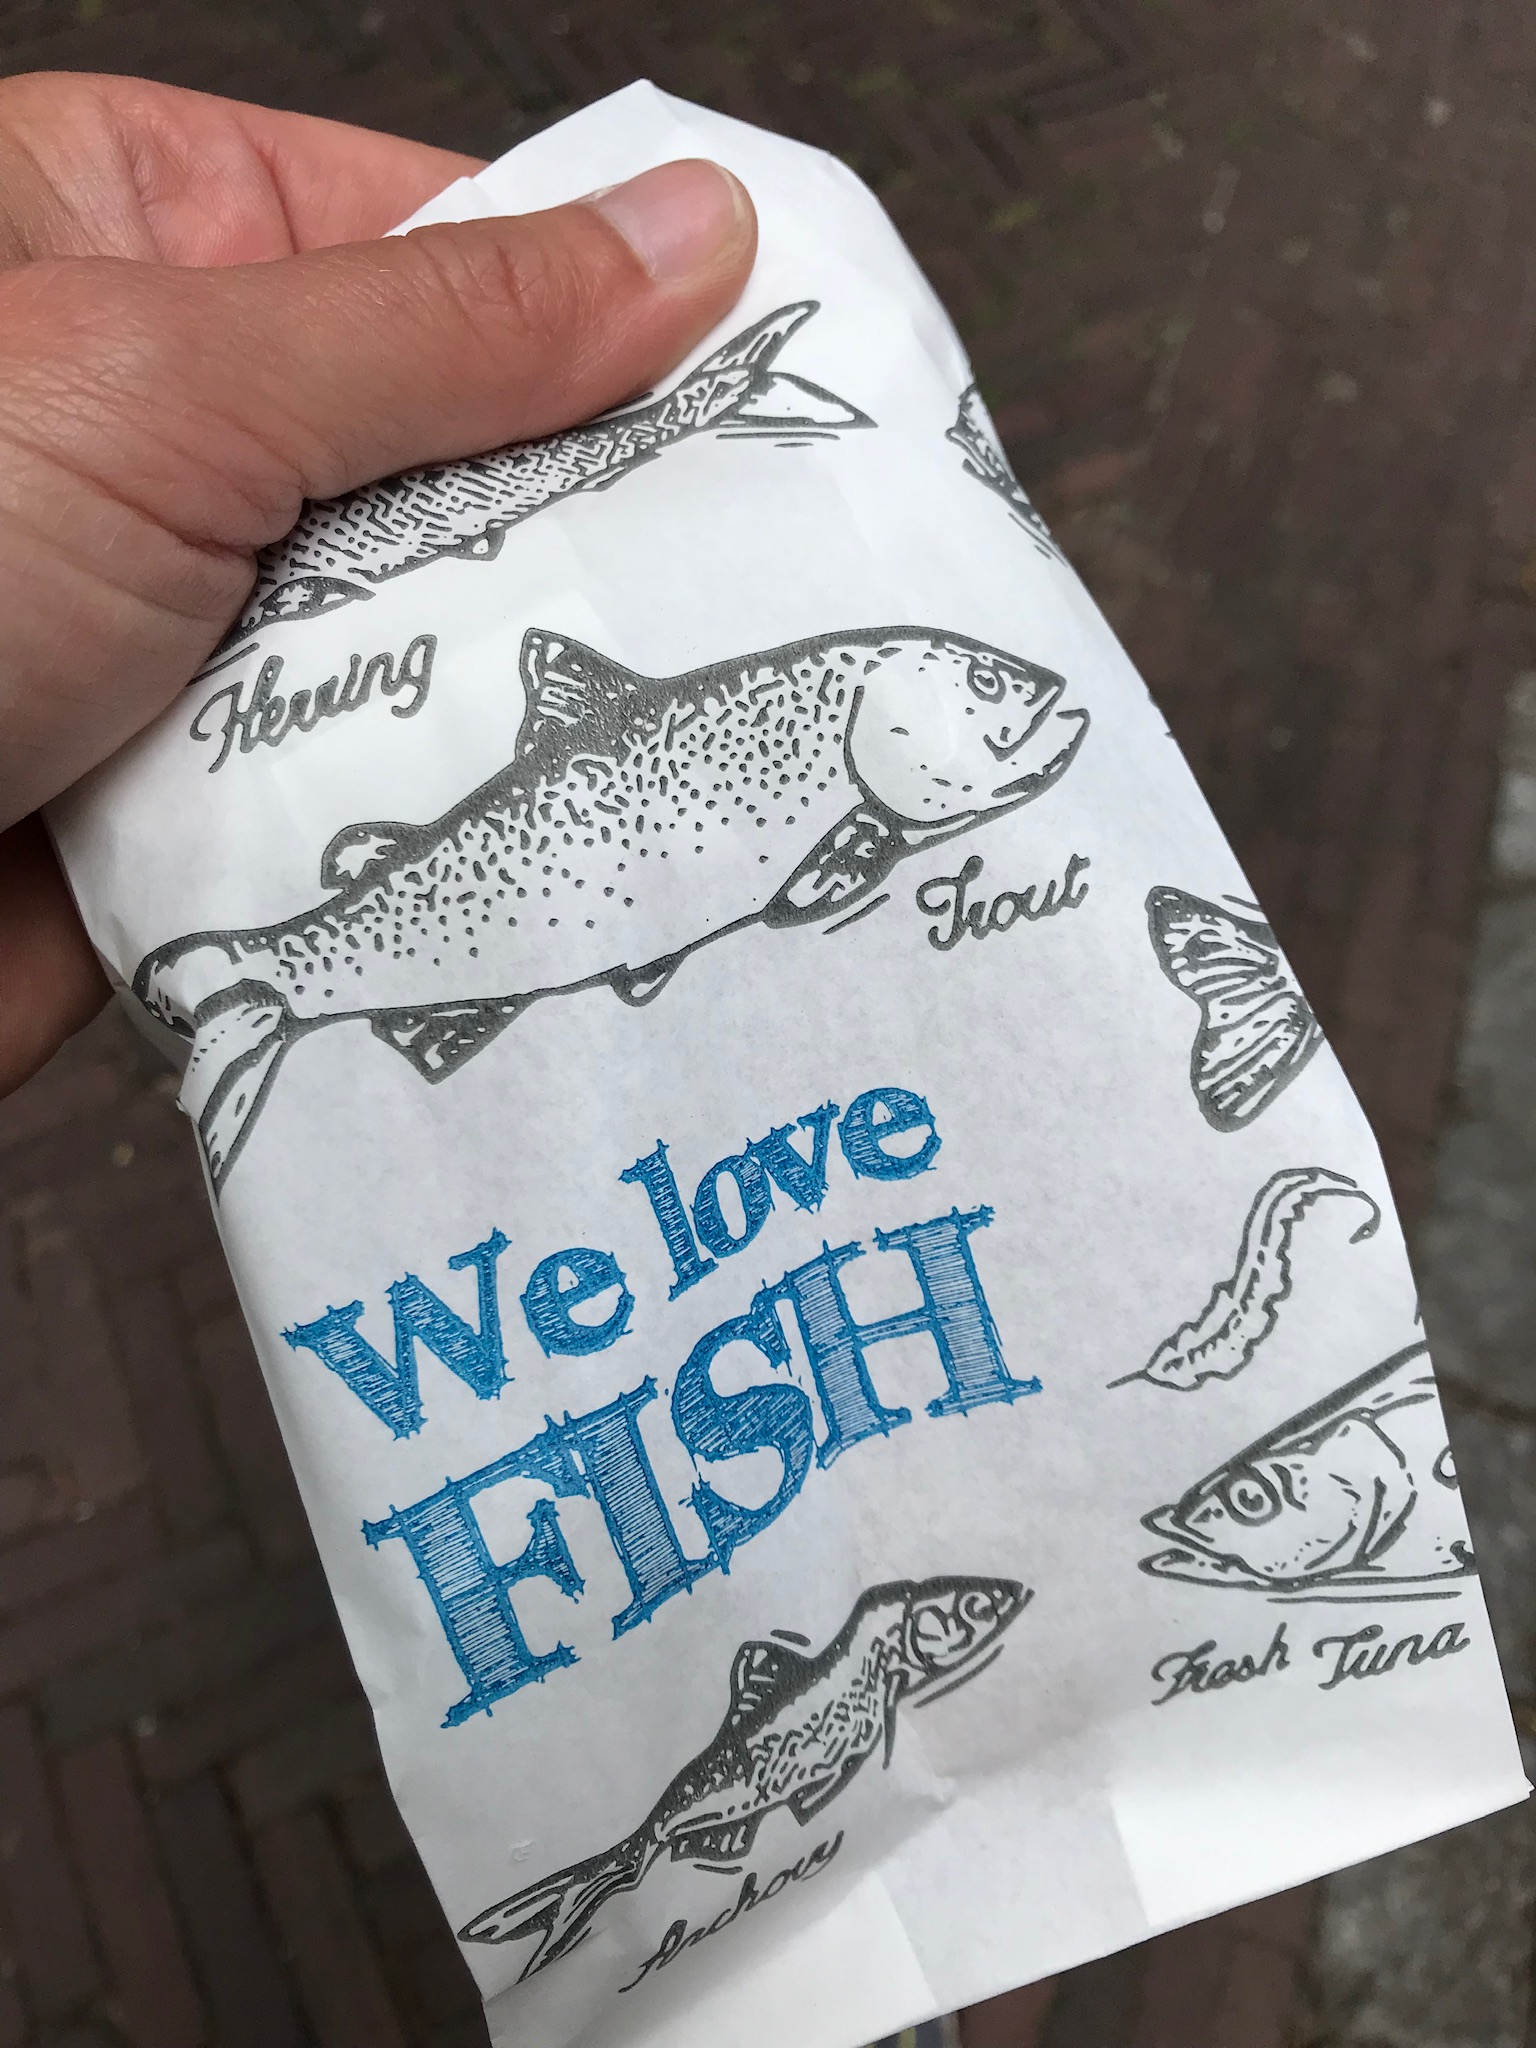 Herring
Trout
We love
FISH
Fresh Tuna
Anchovy